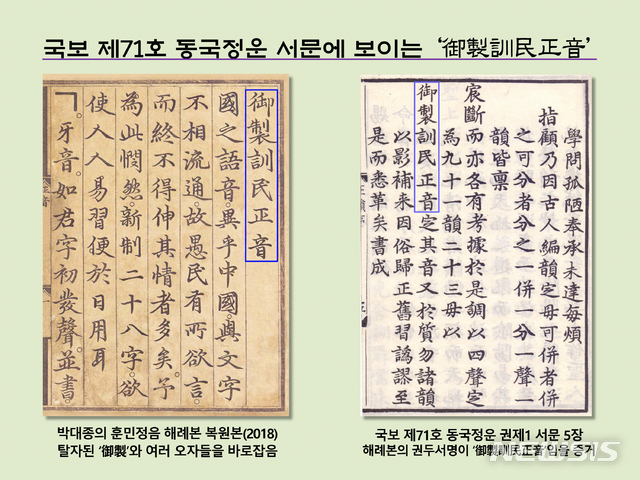 국보 제71호 동국정운 서문에 보이는 ‘御製訓民正音’
御製訓民正音
國之語音。異乎中國。與文字
不相流通。故愚民有所欲言。
而終不得伸其情者多矣。予
為此憫然。新制二十八字。欲
使人人易習便於日用耳
ㄱ。牙音。如君字初發聲。並書
學問孤陋奉承未達每煩
指顧乃因古人編韻定母可併者併
之可分者分之一併一分一聲一
韻皆稟
宸斷而亦各有考據於是調以四聲定
為九十一韻二十三母以
御製訓民正音定其音又於質勿諸韻
以影補來因俗歸正舊習譌謬至
是而悉革矣書成
박대종의 훈민정음 해례본 복원본(2018)
탈자된 ‘御製’와 여러 오자들을 바로잡음
국보 제71호 동국정운 권제1 서문 5장
해례본의 권두서명이 ‘御製訓民正音’임을 증거
NEWSIS